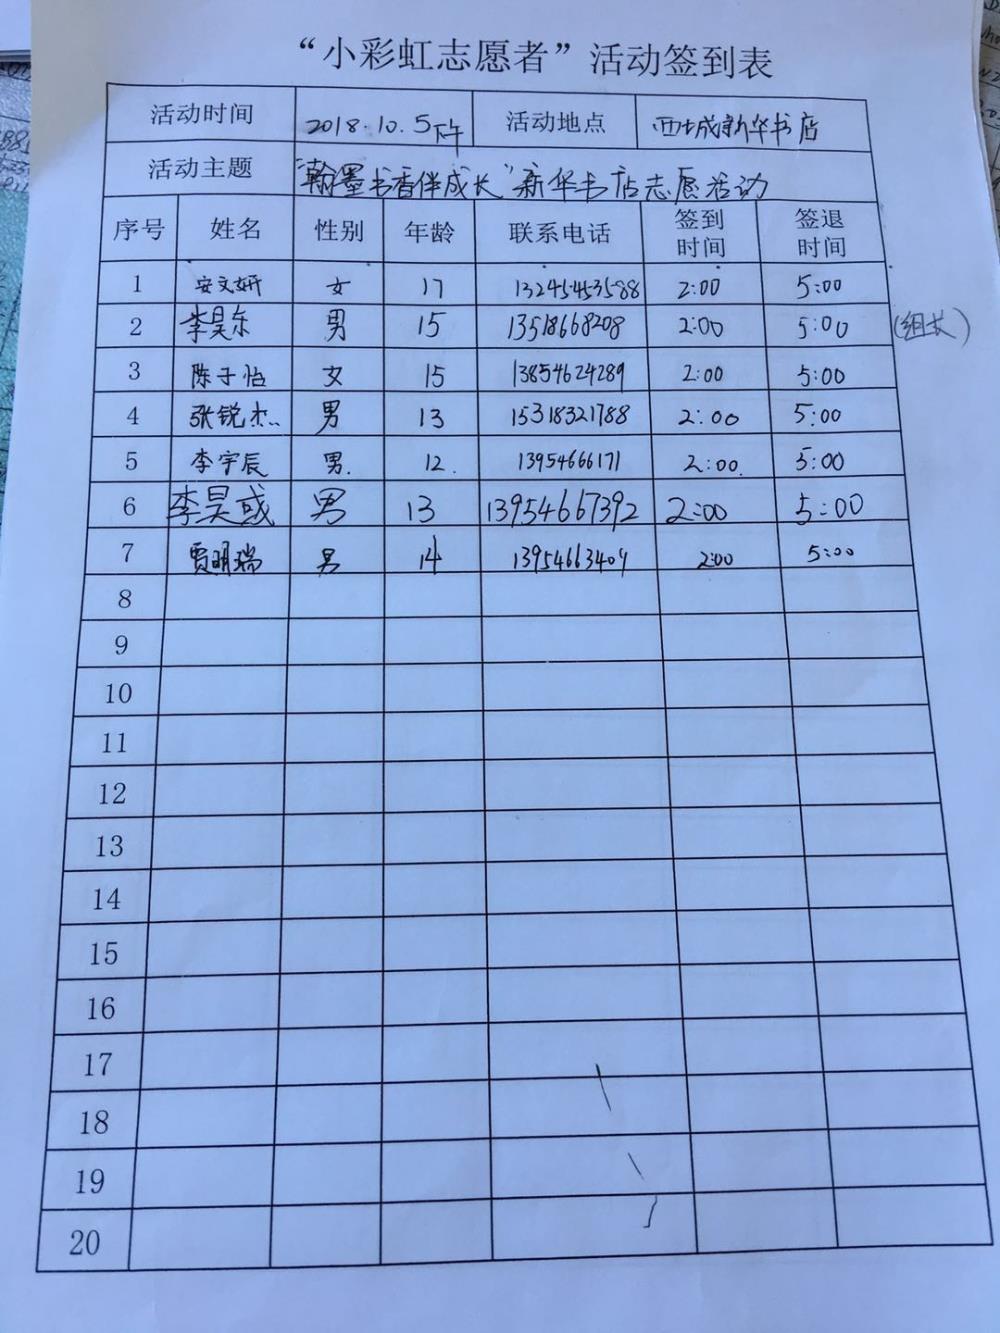 “小彩虹志愿者”活动签到表
活动时间 2018.10.5下午 活动地点 西城新华书店
活动主题 “翰墨书香伴成长”新华书店志愿活动
序号 姓名 性别 年龄 联系电话 签到时间 签退时间
1 安文妍 女 17 13245453588 2:00 5:00
2 李昊东 男 15 13518668208 2:00 5:00 (组长)
3 陈子怡 女 15 13854624289 2:00 5:00
4 张锐杰 男 13 15318321788 2:00 5:00
5 李宇辰 男 12 13954666171 2:00 5:00
6 李昊彧 男 13 13954667392 2:00 5:00
7 贾明瑞 男 14 13954663409 2:00 5:00
8
9
10
11
12
13
14
15
16
17
18
19
20